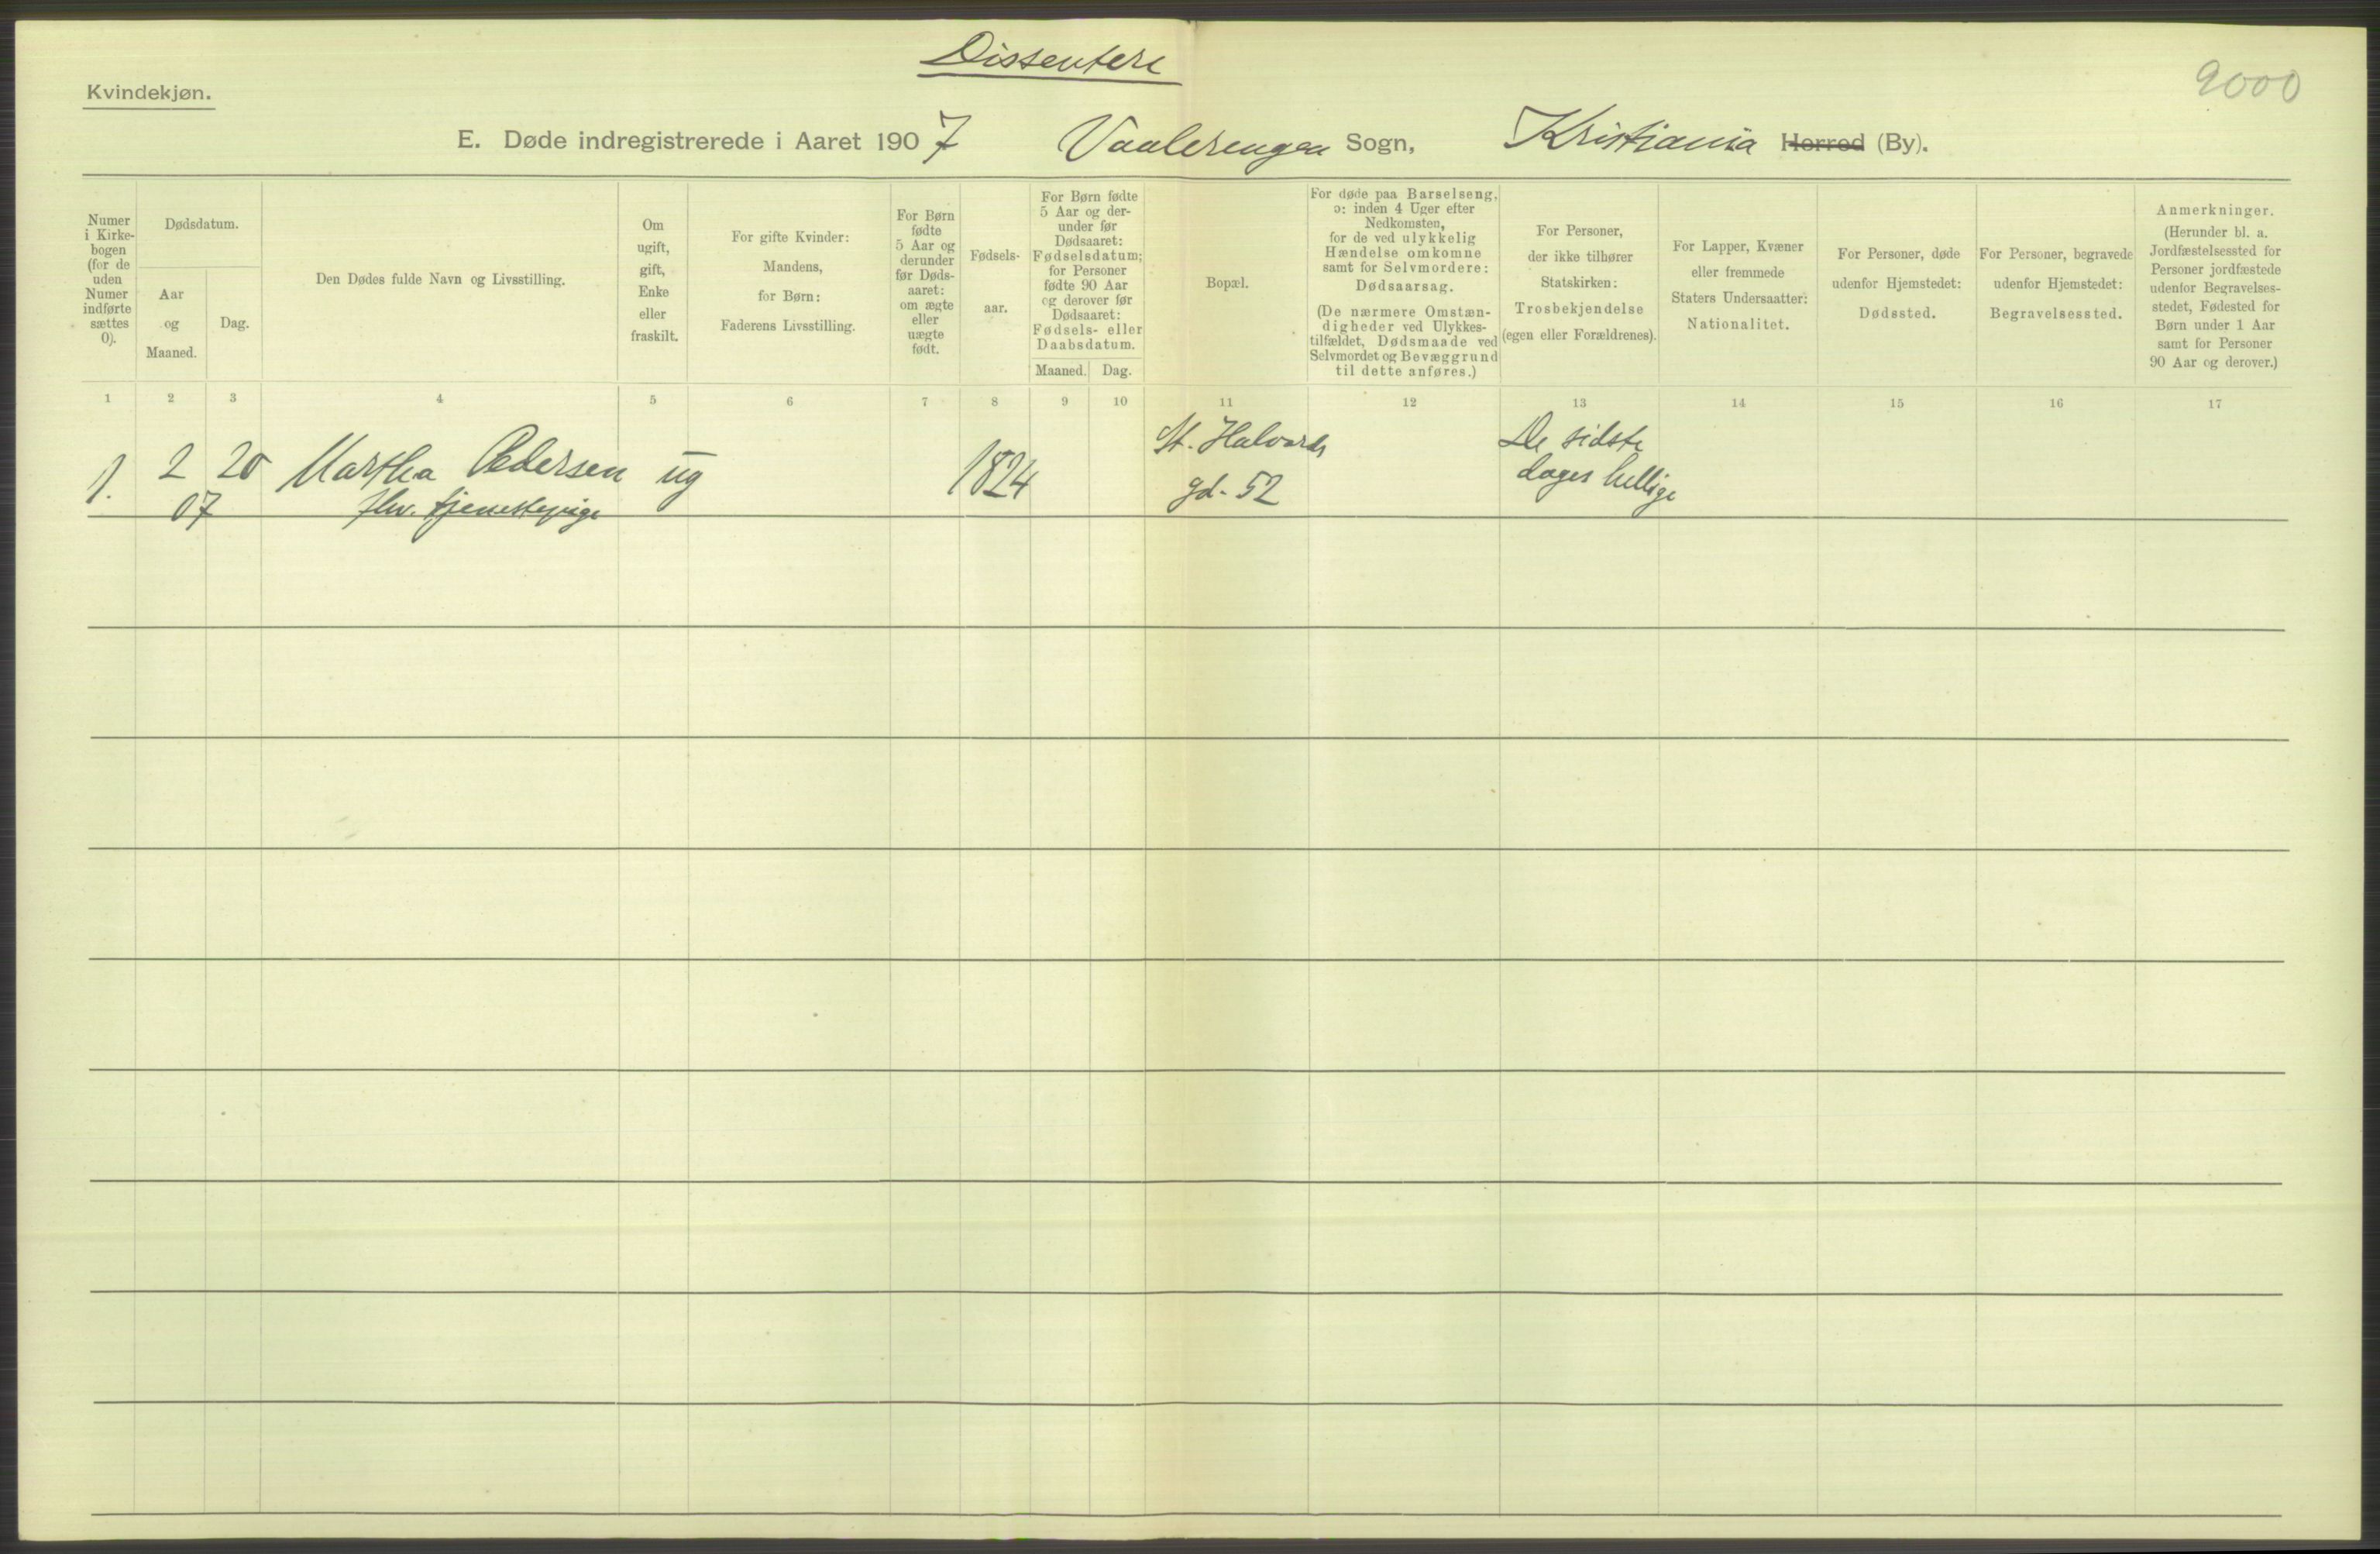 Dissentere
9000
Kvindekjøn.
E. Døde indregistrerede i Aaret 1907 Vaalerengen Sogn, Kristiania Herred (By).
Numer
i Kirke-
bogen
(for de
uden
Numer
indførte
sættes
0).
Dødsdatum.
Aar
og
Maaned.
Dag.
Den Dødes fulde Navn og Livsstilling.
Om
ugift,
gift,
Enke
eller
fraskilt.
For gifte Kvinder:
Mandens,
for Børn:
Faderens Livsstilling.
For Børn
fødte
5 Aar og
derunder
før Døds-
aaret:
om ægte
eller
uægte
født.
Fødsels-
aar.
For Børn fødte
5 Aar og der-
under før
Dødsaaret:
Fødselsdatum;
for Personer
fødte 90 Aar
og derover før
Dødsaaret:
Fødsels- eller
Daabsdatum.
Maaned.
Dag.
Bopæl.
For døde paa Barselseng,
ɔ: inden 4 Uger efter
Nedkomsten,
for de ved ulykkelig
Hændelse omkomne
samt for Selvmordere:
Dødsaarsag.
(De nærmere Omstæn-
digheder ved Ulykkes-
tilfældet, Dødsmaade ved
Selvmordet og Bevæggrund
til dette anføres.)
For Personer,
der ikke tilhører
Statskirken:
Trosbekjendelse
(egen eller Forældrenes).
For Lapper, Kvæner
eller fremmede
Staters Undersaatter:
Nationalitet.
For Personer, døde
udenfor Hjemstedet:
Dødssted.
For Personer, begravede
udenfor Hjemstedet:
Begravelsessted.
Anmerkninger.
(Herunder bl. a.
Jordfæstelsessted for
Personer jordfæstede
udenfor Begravelses-
stedet, Fødested for
Børn under 1 Aar
samt for Personer
90 Aar og derover.)
1 2 3 4 5 6 7 8 9 10 11 12 13 14 15 16 17
1. 2 20 Martha Pedersen ug 1824 St. Halvards De sidste
07 fhv. tjenestepige gd. 52 dages hellige